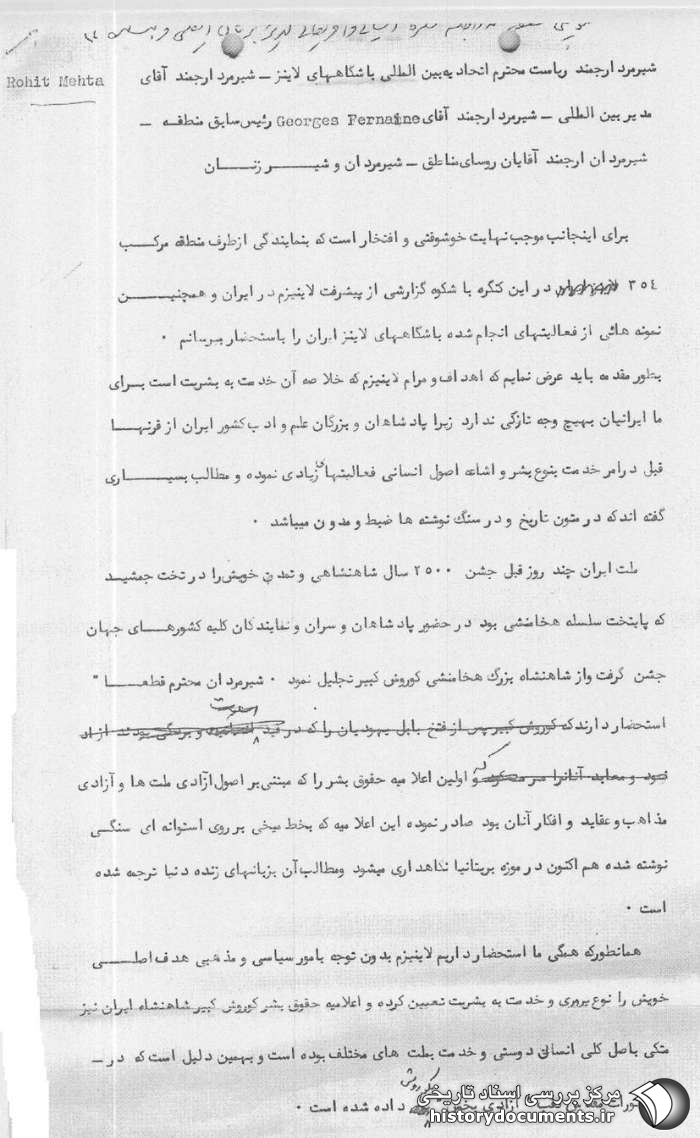 Rohit Mehta
شیرمرد ارجمند ریاست محترم اتحادیه بین المللی باشگاههای لاینز ـ شیرمرد ارجمند آقای
مدیر بین المللی ـ شیرمرد ارجمند آقای Georges Fernaine رئیس سابق منطقه ـ
شیرمردان ارجمند آقایان روسای مناطق ـ شیرمردان و شیـــر زنــان
برای اینجانب موجب نهایت خوشوقتی و افتخار است که بنمایندگی ازطرف منطقه مرکــب
۳۵٤ در این کنگره با شکوه گزارشی از پیشرفت لاینیزم در ایران و همچنیــن
نمونه هائی از فعالیتهای انجام شده باشگاههای لاینز ایران را باستحضار میرسانم ۰
بطور مقدمه باید عرض نمایم که اهداف و مرام لاینیزم که خلاصه آن خدمت به بشریت است بـرای
ما ایرانیان بهیچ وجه تازگی ندارد زیرا پادشاهان و بزرگان علم و ادب کشور ایران از قرنهــا
قبل در امر خدمت بنوع بشر و اشاعه اصول انسانی فعالیتهای زیادی نموده و مطالب بسیــاری
گفته اند که در متون تاریخ و در سنگ نوشته ها ضبط و مدون میباشد ۰
ملت ایران چند روز قبل جشن ۲۵۰۰ سال شاهنشاهی و تمدن خویش را در تخت جمشیــد
که پایتخت سلسله هخامنشی بود در حضور پادشاهان و سران و نمایندگان کلیه کشورهــای جهان
جشن گرفت و از شاهنشاه بزرگ هخامنشی کوروش کبیر تجلیل نمود ۰ شیرمردان محترم قطعــا "
استحضار دارند که کوروش کبیر پس از فتح بابل یهودیان را که در قید اسارت و بردگی بودند آزاد
نمود و معابد آنانرا که و اولین اعلامیه حقوق بشر را که مبتنی بر اصول آزادی ملت ها و آزادی
مذاهب و عقاید و افکار آنان بود صادر نموده این اعلامیه که بخط میخی بر روی استوانه ای سنگــی
نوشته شده هم اکنون در موزه بریتانیا نگاهداری میشود و مطالب آن بزبانهای زنده دنیا ترجمه شده
است ۰
همانطورکه همگی ما استحضار داریم لاینیزم بدون توجه بامور سیاسی و مذهبی هدف اصلــی
خویش را نوع پروری و خدمت به بشریت تعیین کرده و اعلامیه حقوق بشر کوروش کبیر شاهنشاه ایران نیز
متکی باصل کلی انسانی دوستی و خدمت بملت های مختلف بوده است و بهمین دلیل است که در ـ
آزادی داده شده است ۰
مرکز بررسی اسناد تاریخی
historydocuments.ir